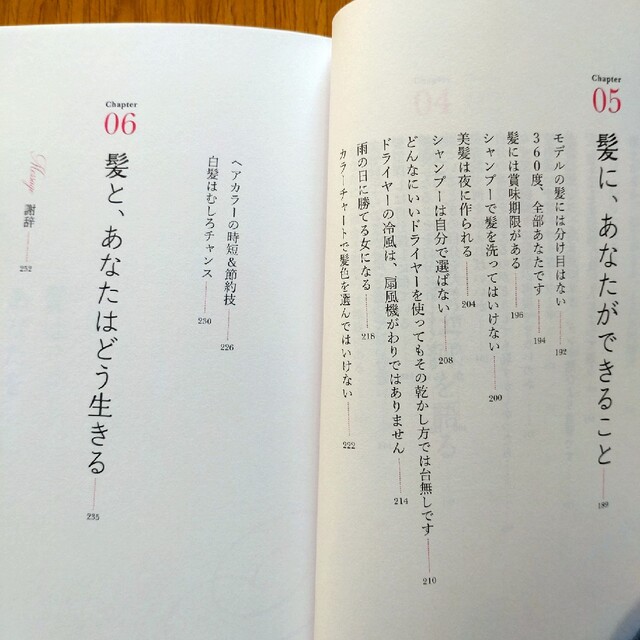 Chapter
05
髪に、あなたができること 189
モデルの髪には分け目はない 192
360度、全部あなたです 194
髪には賞味期限がある 196
シャンプーで髪を洗ってはいけない 200
美髪は夜に作られる 204
シャンプーは自分で選ばない 208
どんなにいいドライヤーを使ってもその乾かし方では台無しです 210
ドライヤーの冷風は、扇風機がわりではありません 214
雨の日に勝てる女になる 218
カラーチャートで髪色を選んではいけない 222
ヘアカラーの時短&節約技 226
白髪はむしろチャンス 230
Chapter
06
髪と、あなたはどう生きる 235
謝辞 252